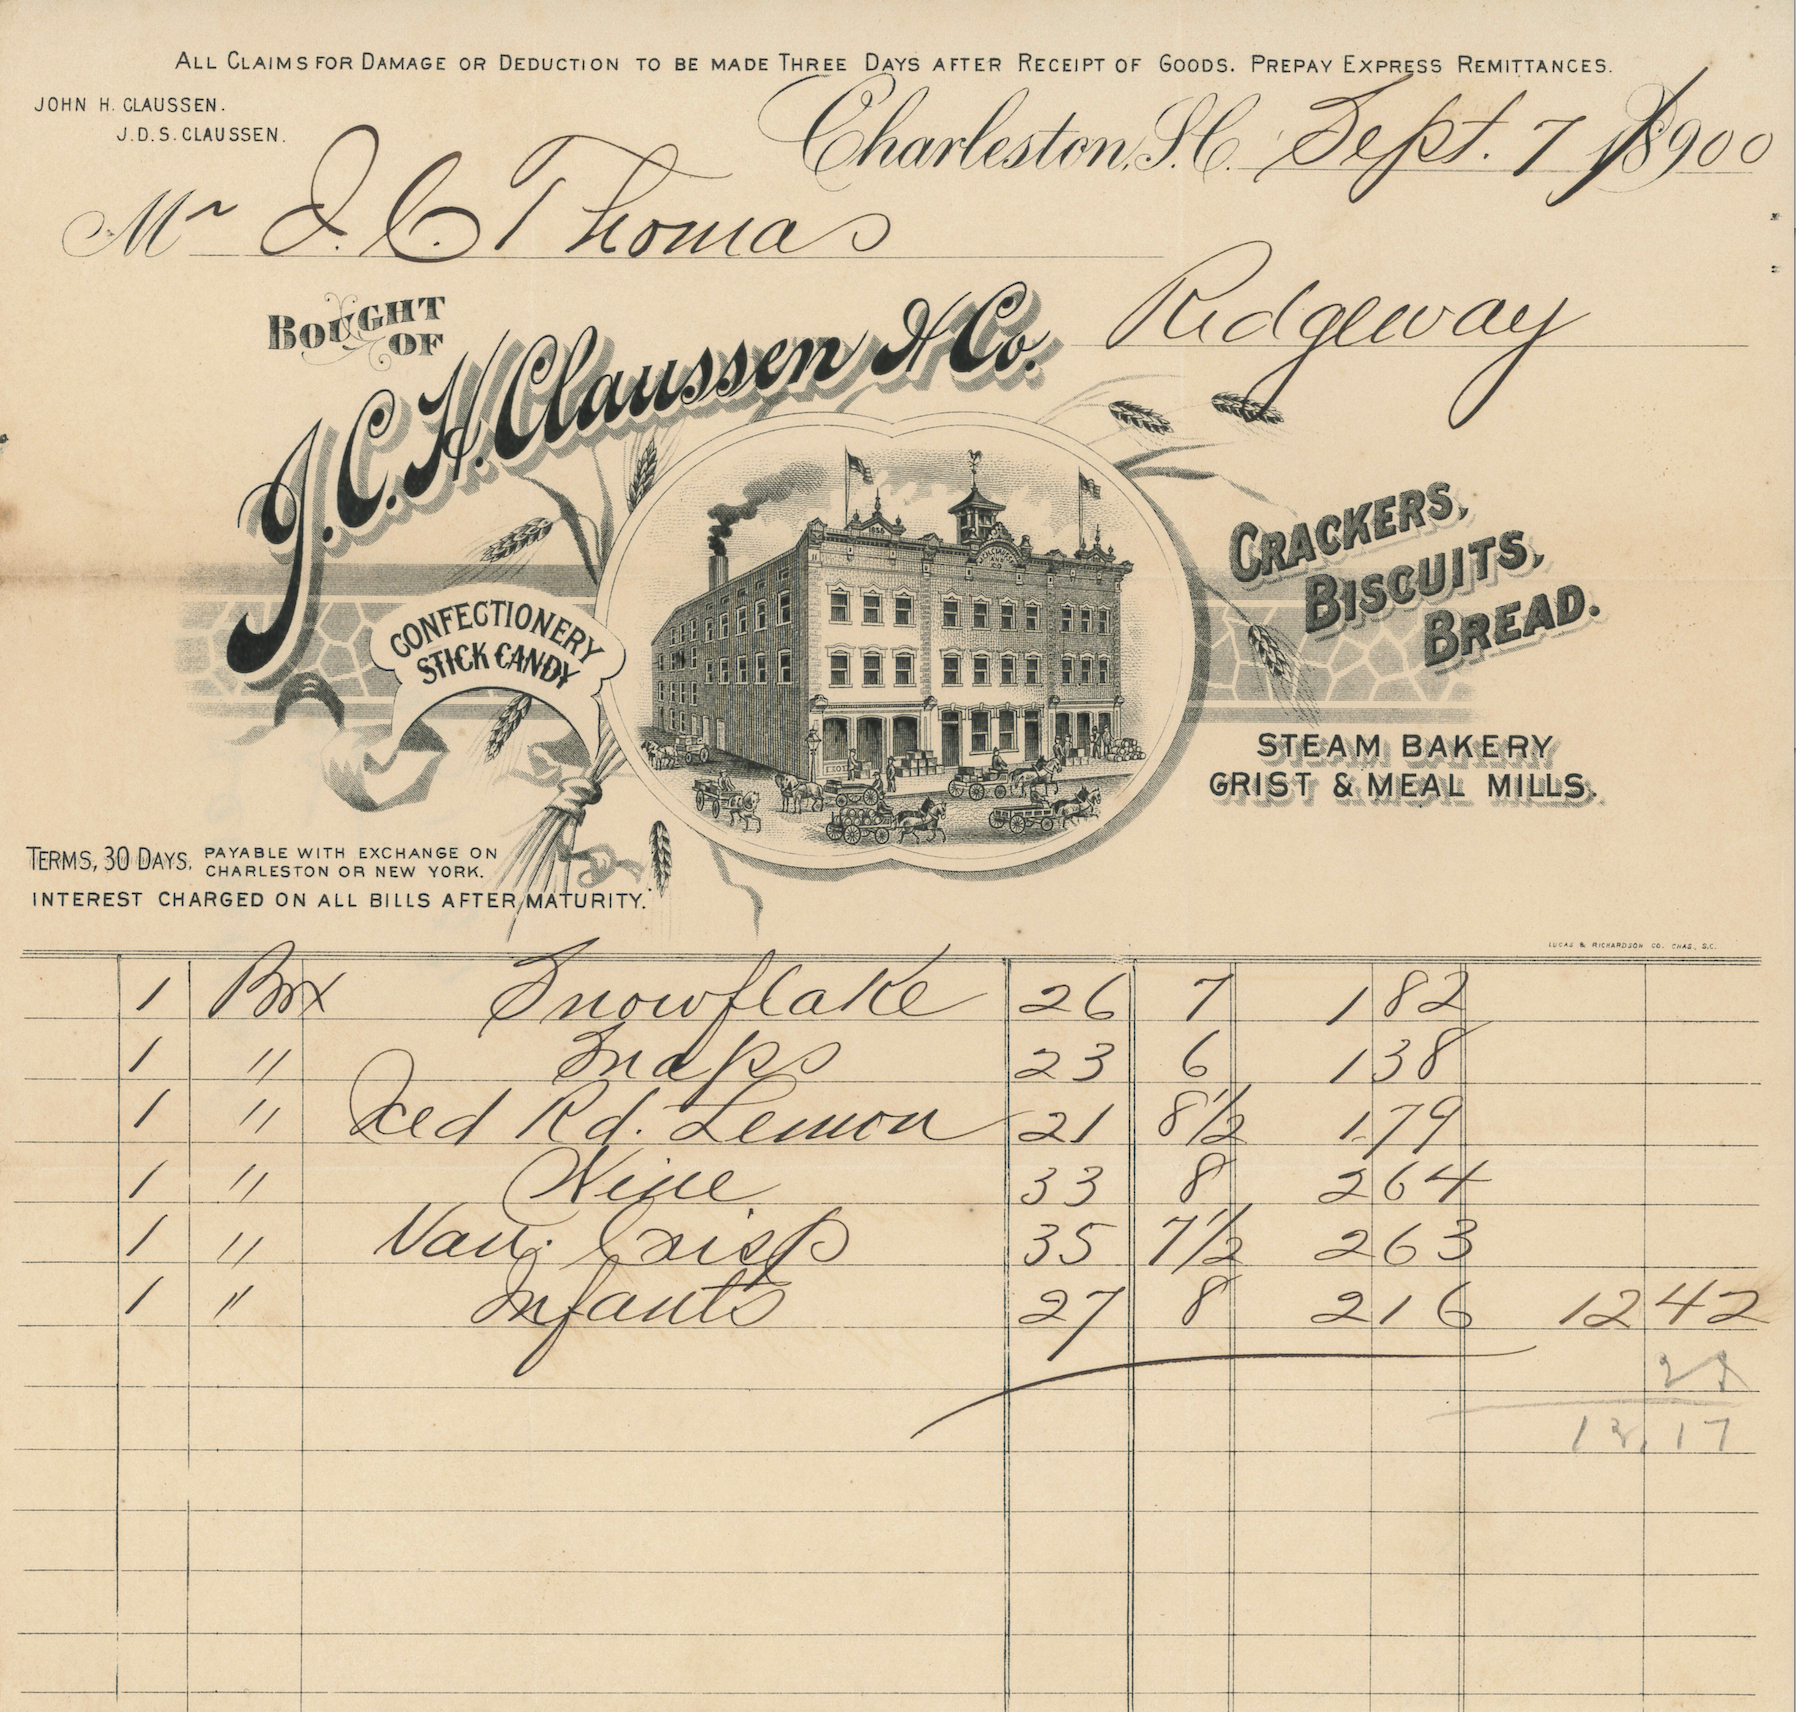 ALL CLAIMS FOR DAMAGE OR DEDUCTION TO BE MADE THREE DAYS AFTER RECEIPT OF GOODS. PREPAY EXPRESS REMITTANCES.
JOHN H. CLAUSSEN.
J.D.S. CLAUSSEN.
Charleston, S.C. Sept. 7 1900
Mr J. C. Thomas
Ridgeway
BOUGHT OF
J.C.H. Claussen & Co.
CRACKERS,
BISCUITS,
BREAD.
CONFECTIONERY
STICK CANDY
STEAM BAKERY
GRIST & MEAL MILLS.
TERMS, 30 DAYS. PAYABLE WITH EXCHANGE ON
CHARLESTON OR NEW YORK.
INTEREST CHARGED ON ALL BILLS AFTER MATURITY.
LUCAS & RICHARDSON CO. CHAS., S.C.
1 Box Snowflake 26 7 1 82
1 " Snaps 23 6 1 38
1 " Iced Rd. Lemon 21 8 1/2 1 79
1 " Nine 33 8 2 64
1 " Van. Crisp 35 7 1/2 2 63
1 " Infants 27 8 2 16 12 42